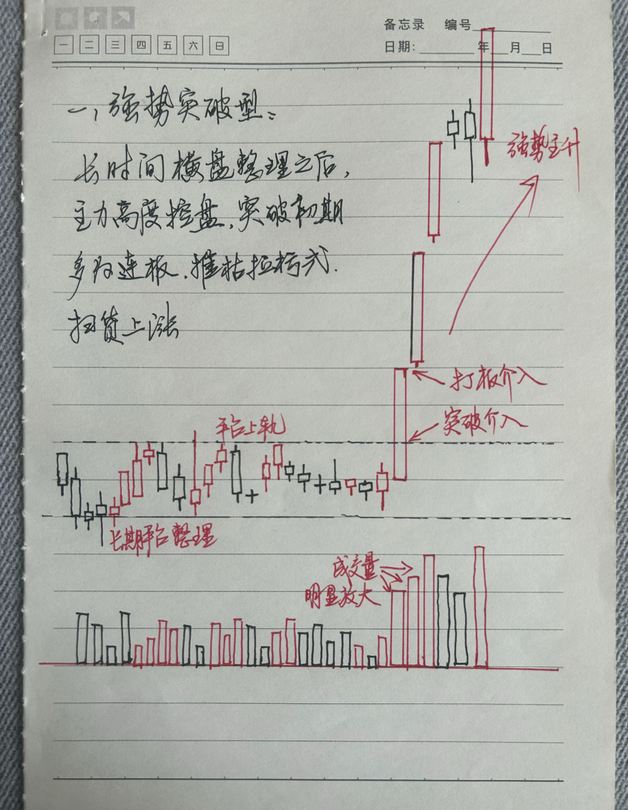 备忘录 编号
一 二 三 四 五 六 日
日期: 年 月 日
一，强势突破型：
长时间横盘整理之后，
主力高度控盘，突破初期
多为连板，摧枯拉朽式，
扫货上涨
强势主升
打板介入
突破介入
平台上轨
长期平台整理
成交量
明显放大